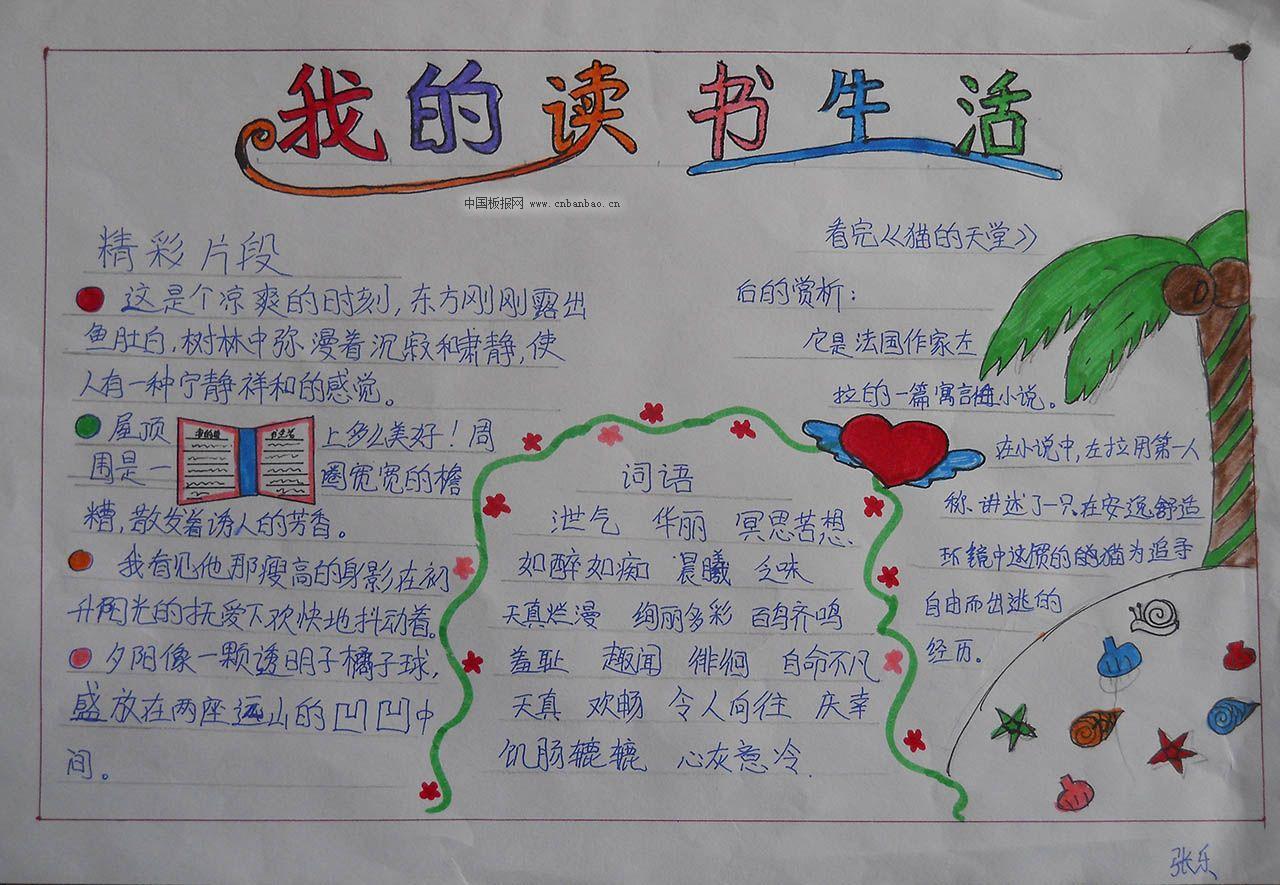 我的读书生活
中国板报网 www.cnbanbao.cn
精彩片段
这是个凉爽的时刻,东方刚刚露出
鱼肚白,树林中弥漫着沉寂和肃静,使
人有一种宁静祥和的感觉。
屋顶上多么美好!周
围是一圈宽宽的檐
糟,散发着诱人的芳香。
我看见他那瘦高的身影在初
升阳光的抚爱下欢快地抖动着。
夕阳像一颗透明子橘子球,
盛放在两座远山的凹凹中
间。
词语
泄气 华丽 冥思苦想.
如醉如痴 晨曦 乏味
天真烂漫 绚丽多彩 百鸟齐鸣
羞耻 趣闻 徘徊 自命不凡
天真 欢畅 令人向往 庆幸
饥肠辘辘 心灰意冷.
看完《猫的天堂》
后的赏析:
它是法国作家左
拉的一篇寓言小说。
在小说中,左拉用第一人
称讲述了一只在安逸舒适
环镜中这惯的的猫为追寻
自由而出逃的
经历。
张乐